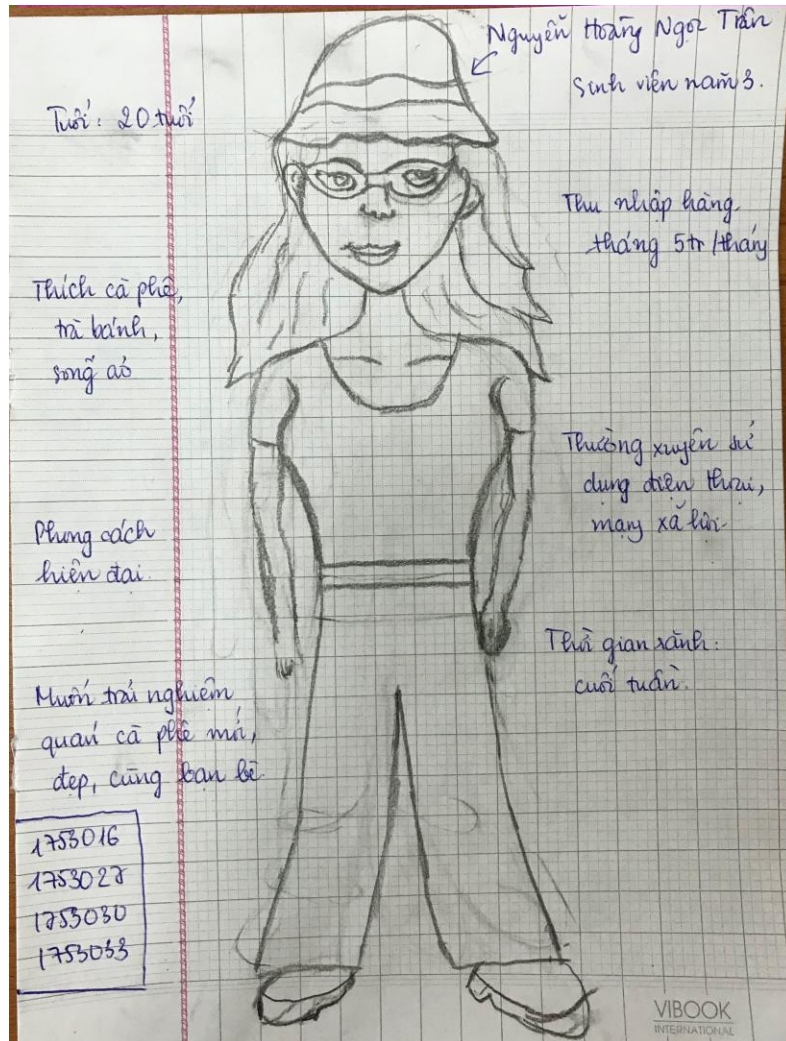 Nguyễn Hoàng Ngọc Trân
Sinh viên năm 3.
Tuổi: 20 tuổi
Thu nhập hàng
tháng 5tr/tháng
Thích cà phê,
trà bánh,
sống ảo
Thường xuyên sử
dụng điện thoại,
mạng xã hội
Phong cách
hiện đại
Thời gian rảnh:
cuối tuần.
Muốn trải nghiệm
quán cà phê mới,
đẹp, cùng bạn bè
1753016
1753027
1753030
1753033
VIBOOK
INTERNATIONAL